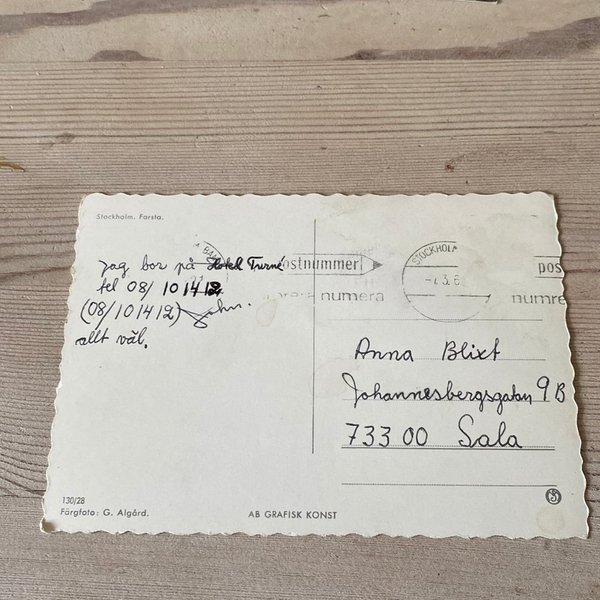 Stockholm. Farsta.
Jag bor på Hotel Turné
tel 08/ 101412
(08/101412) John.
allt väl.
ostnummer
numera
STOCKHOLM
-7.3.6
pos
numre
Anna Blixt
Johannesbergsgatan 9B
733 00 Sala
130/28
Färgfoto: G. Algård.
AB GRAFISK KONST